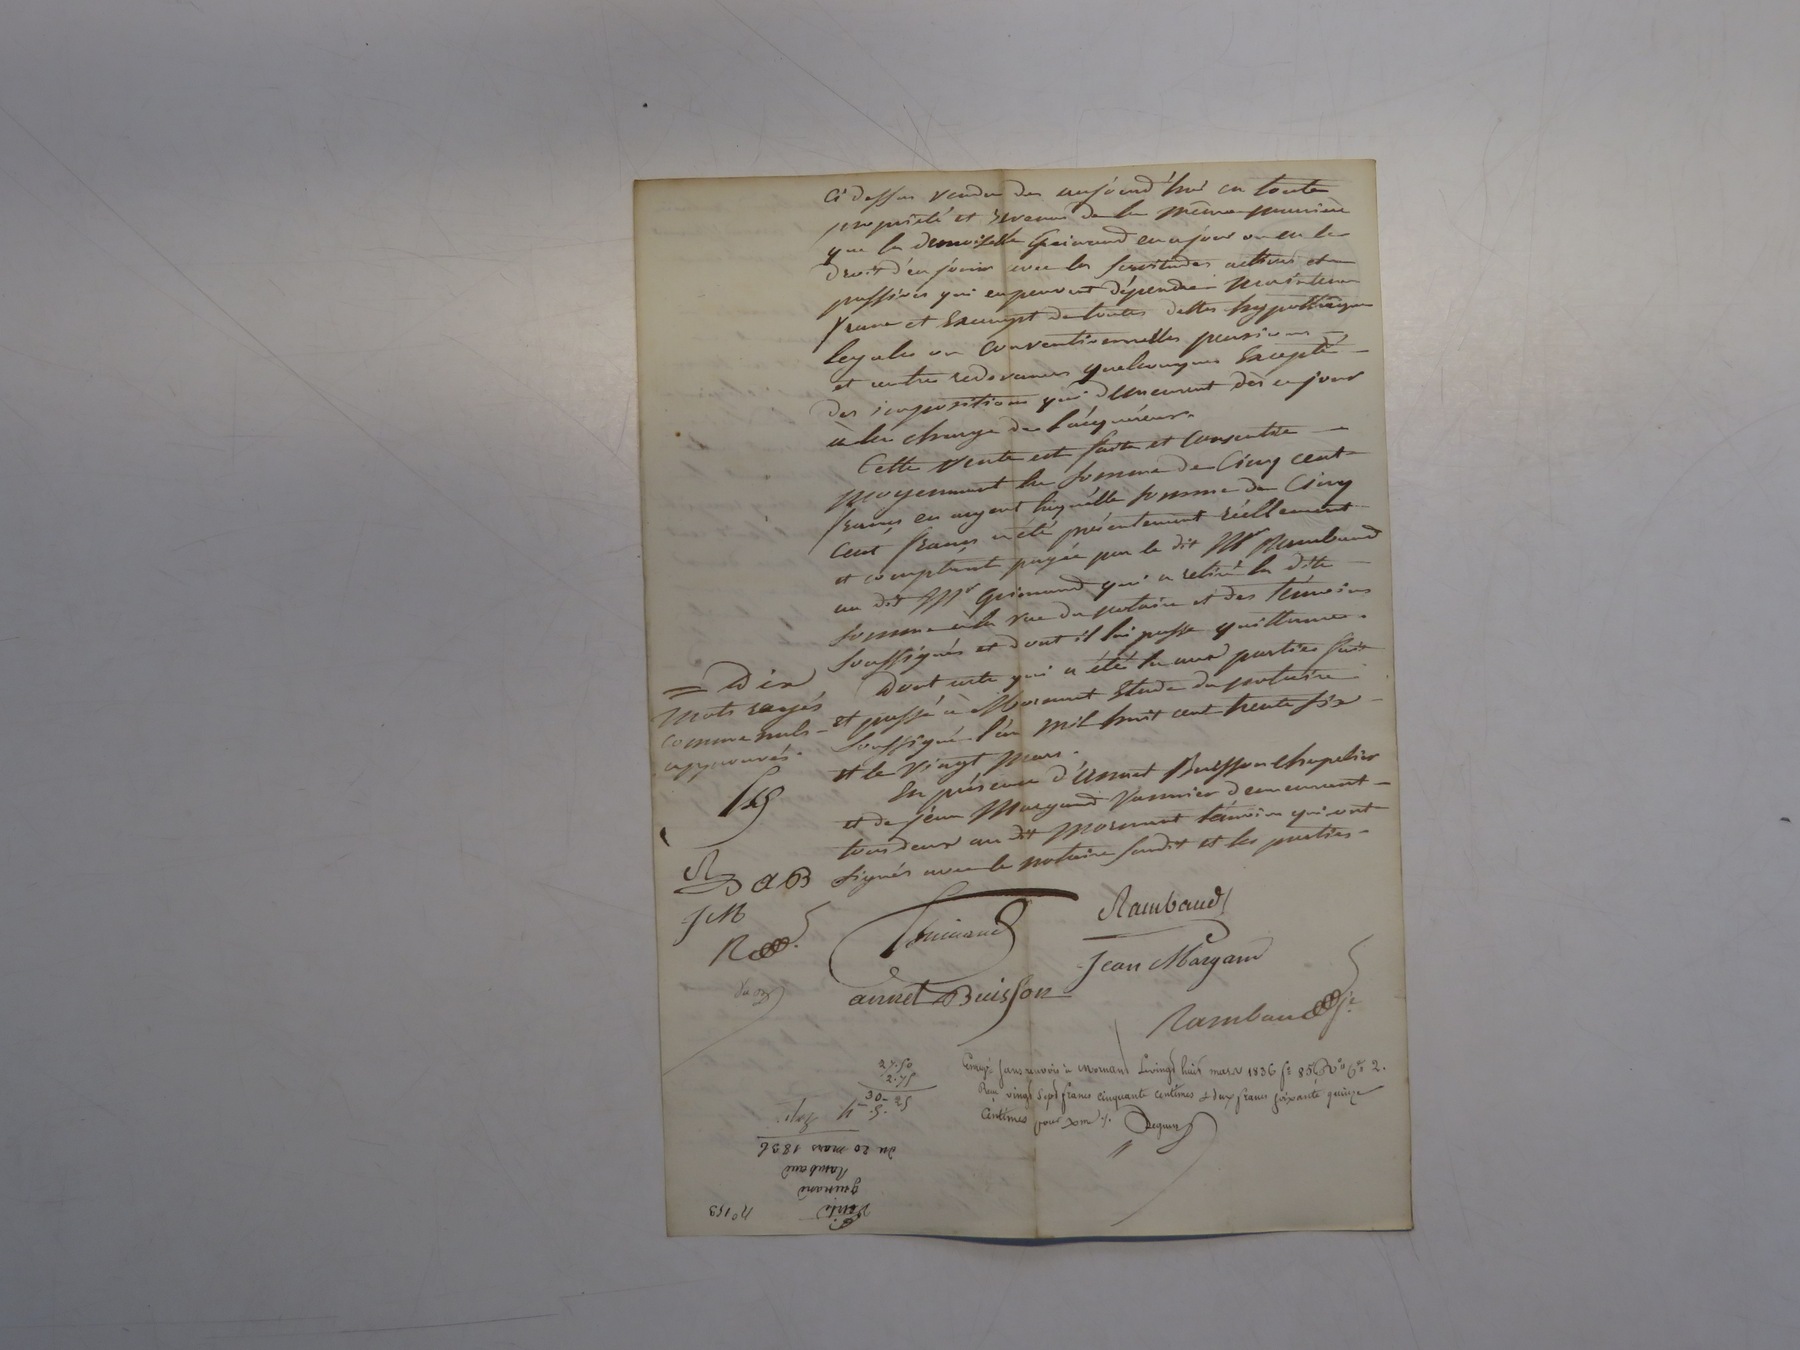 Ci dessus vendu des aujourd'hui en toute
propriété et revenu de la même manière
que la demoiselle Guinand en a joui ou eu le
droit d'en jouir avec les servitudes actives et
passives qui en peuvent dépendre
franc et Exempt de toutes dettes hypothèques
legales ou Conventionnelles pensions
et autres redevances quelconques Excepté
des impositions qui demeurent dès ce jour
à la charge de l'acquéreur.
Cette Vente est faite et Consentie
moyennant la somme de Cinq cent
francs en argent laquelle somme de Cinq
Cent francs a été présentement réellement
et comptant payée par le dit Mr Rambaud
au dit Mr Guinand qui a retiré la dite
somme à la vue du notaire et des témoins
soussignés et dont il lui passe quittance.
Dont acte qui a été lu aux parties fait
et passé à Mornant Etude du notaire
soussigné l'an mil huit cent trente six
et le vingt mars.
En présence d'Annet Buisson chapelier
et de Jean Margand Vannier demeurant
tous deux au dit Mornant témoins qui ont
signés avec le notaire susdit et les parties.
= Dix
mots rayés
comme nuls
approuvés.
AB
JM
Guinand
Rambaud
Jean Margand
annet Buisson
Rambaud je
27.50
2.75
30-25
5.
sans renvoi à Mornant Le vingt huit mars 1836 f° 85
Reçu vingt sept francs cinquante centimes et deux francs soixante quinze
Centimes pour
du 20 mars 1836
Rambaud
guinand
Vente
n° 153